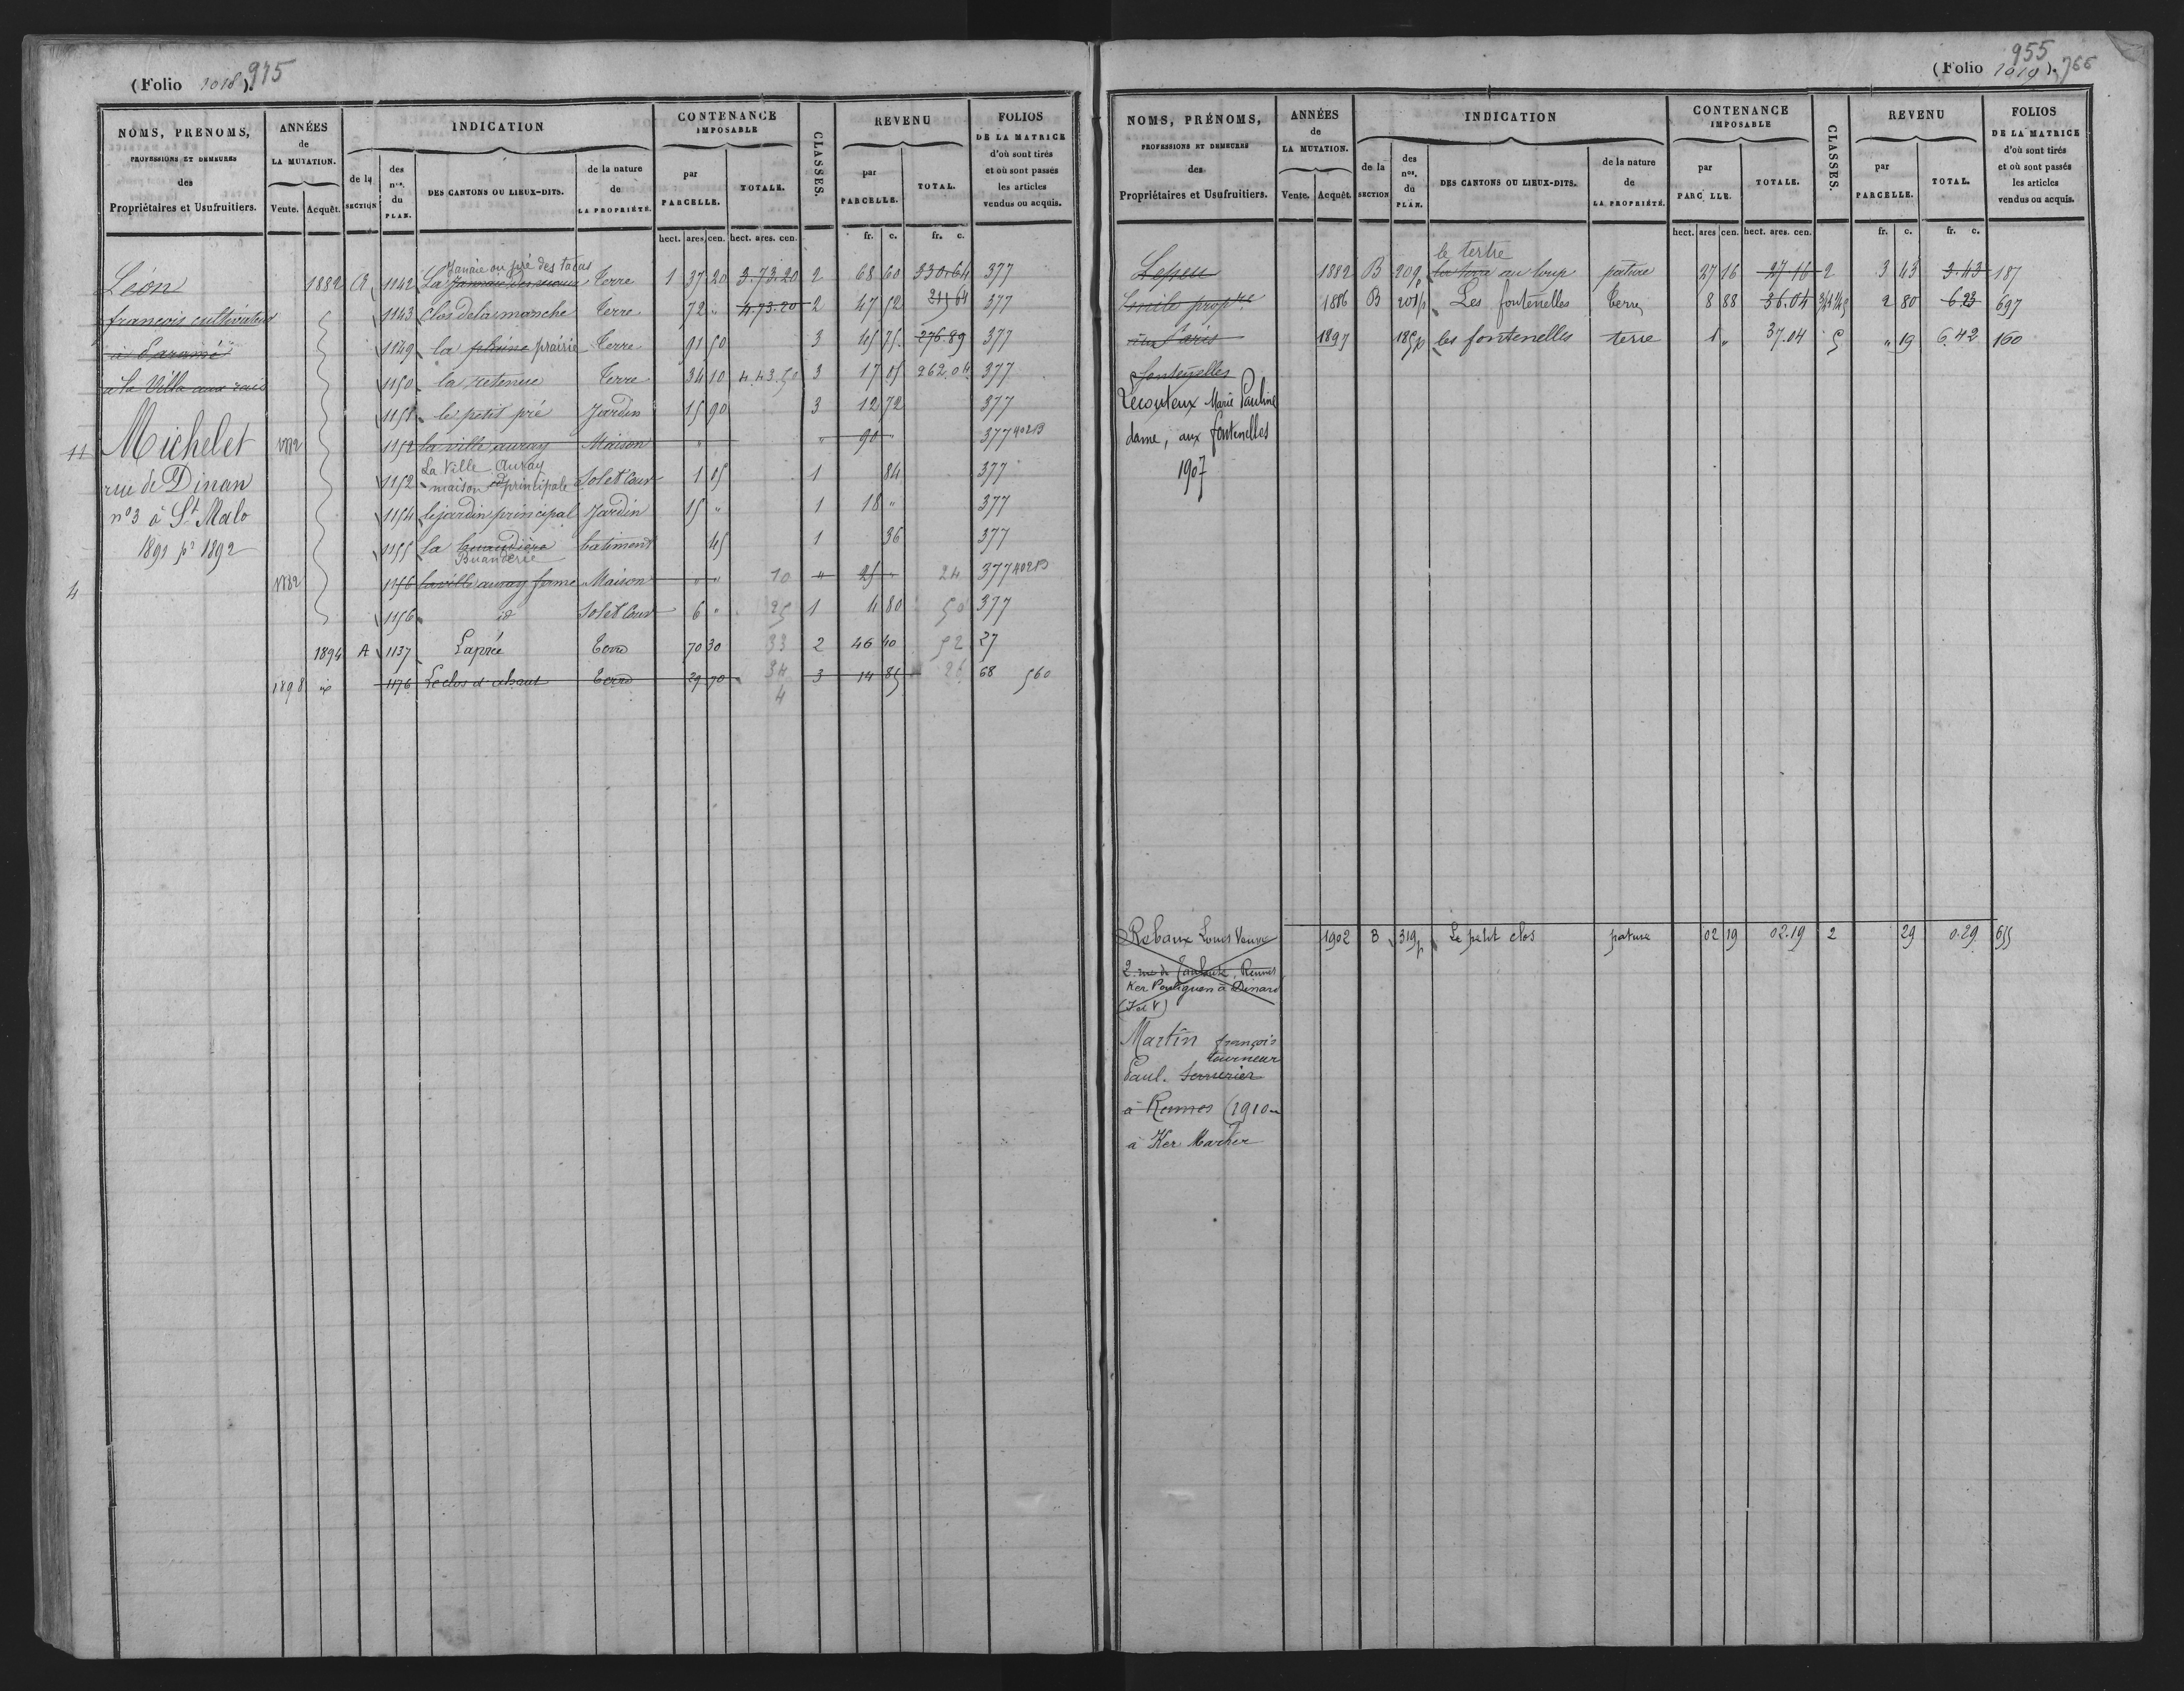 (Folio 1018). 975
NOMS, PRENOMS, PROFESSIONS ET DEMEURES des Propriétaires et Usufruitiers.
ANNÉES de LA MUTATION. Vente. Acquêt.
INDICATION de la SECTION des nos. du PLAN. DES CANTONS OU LIEUX-DITS. de la nature de LA PROPRIÉTÉ.
CONTENANCE IMPOSABLE par PARCELLE. TOTALE.
CLASSES.
REVENU par PARCELLE. TOTAL.
FOLIOS DE LA MATRICE d'où sont tirés et où sont passés les articles vendus ou acquis.
hect. ares cen. hect. ares. cen. fr. c. fr. c.
Léon
françois cultivateur
à Paramé
à la Ville aux rais
Michelet
rue de Dinan
no 3 à St Malo
1891 pr 1892
11
4
1882 A 1142 La Janaie ou pré des tacas Terre 1 37 20 3.73.20 2 68 60 330.64 377
1143 Clos de la manche Terre 72 " 4.73.20 2 47 52 215 64 377
1149 la plaine prairie Terre 91 50 3 45 75 276.89 377
1150 la retenue Terre 34 10 4.43.50 3 17 05 262.04 377
1151 le petit pré Jardin 15 90 3 12 72 377
1882 1152 la ville auray Maison " " 90 " 377 402B
1152 La Ville Auray maison principale Sol et Cour 1 05 1 84 377
1154 le jardin principal Jardin 15 " 1 18 " 377
1155 la Buanderie batiment 45 1 36 377
1882 1156 la ville auray ferme Maison " " 10 " 25 " 24 377 402B
1156 id Sol et Cour 6 " 25 1 4 80 50 377
1894 A 1137 La prée Terre 70 30 33 2 46 40 52 27
1898 1176 Le clos d'ahaut Terre 29 70 34 3 14 85 26 68 560
4
(Folio 1019). 955 766
NOMS, PRÉNOMS, PROFESSIONS ET DEMEURES des Propriétaires et Usufruitiers.
ANNÉES de LA MUTATION. Vente. Acquêt.
INDICATION de la SECTION des nos. du PLAN. DES CANTONS OU LIEUX-DITS. de la nature de LA PROPRIÉTÉ.
CONTENANCE IMPOSABLE par PARC LLE. TOTALE.
CLASSES.
REVENU par PARCELLE. TOTAL.
FOLIOS DE LA MATRICE d'où sont tirés et où sont passés les articles vendus ou acquis.
hect. ares cen. hect. ares. cen. fr. c. fr. c.
Lepeu
Emile propre
à Paris
fontenelles
Lecouteux Marie Pauline
dame, aux fontenelles
1907
1882 B 209p le tertre au loup pature 27 16 27 16 2 3 43 3.43 187
1886 B 201p Les fontenelles Terre 8 88 36.04 3/4 4/5 2 80 6.23 697
1897 185p les fontenelles terre 1 " 37.04 5 " 19 6.42 160
Rebaux Louis Veuve
2 rue de Rennes
Ker Pouliguen à Dinard
(I et V)
Martin françois
tourneur
Paul. serrurier
à Rennes (1910
à Ker Marher
1902 B 319p Le petit clos pature 02 19 02.19 2 29 0.29 655